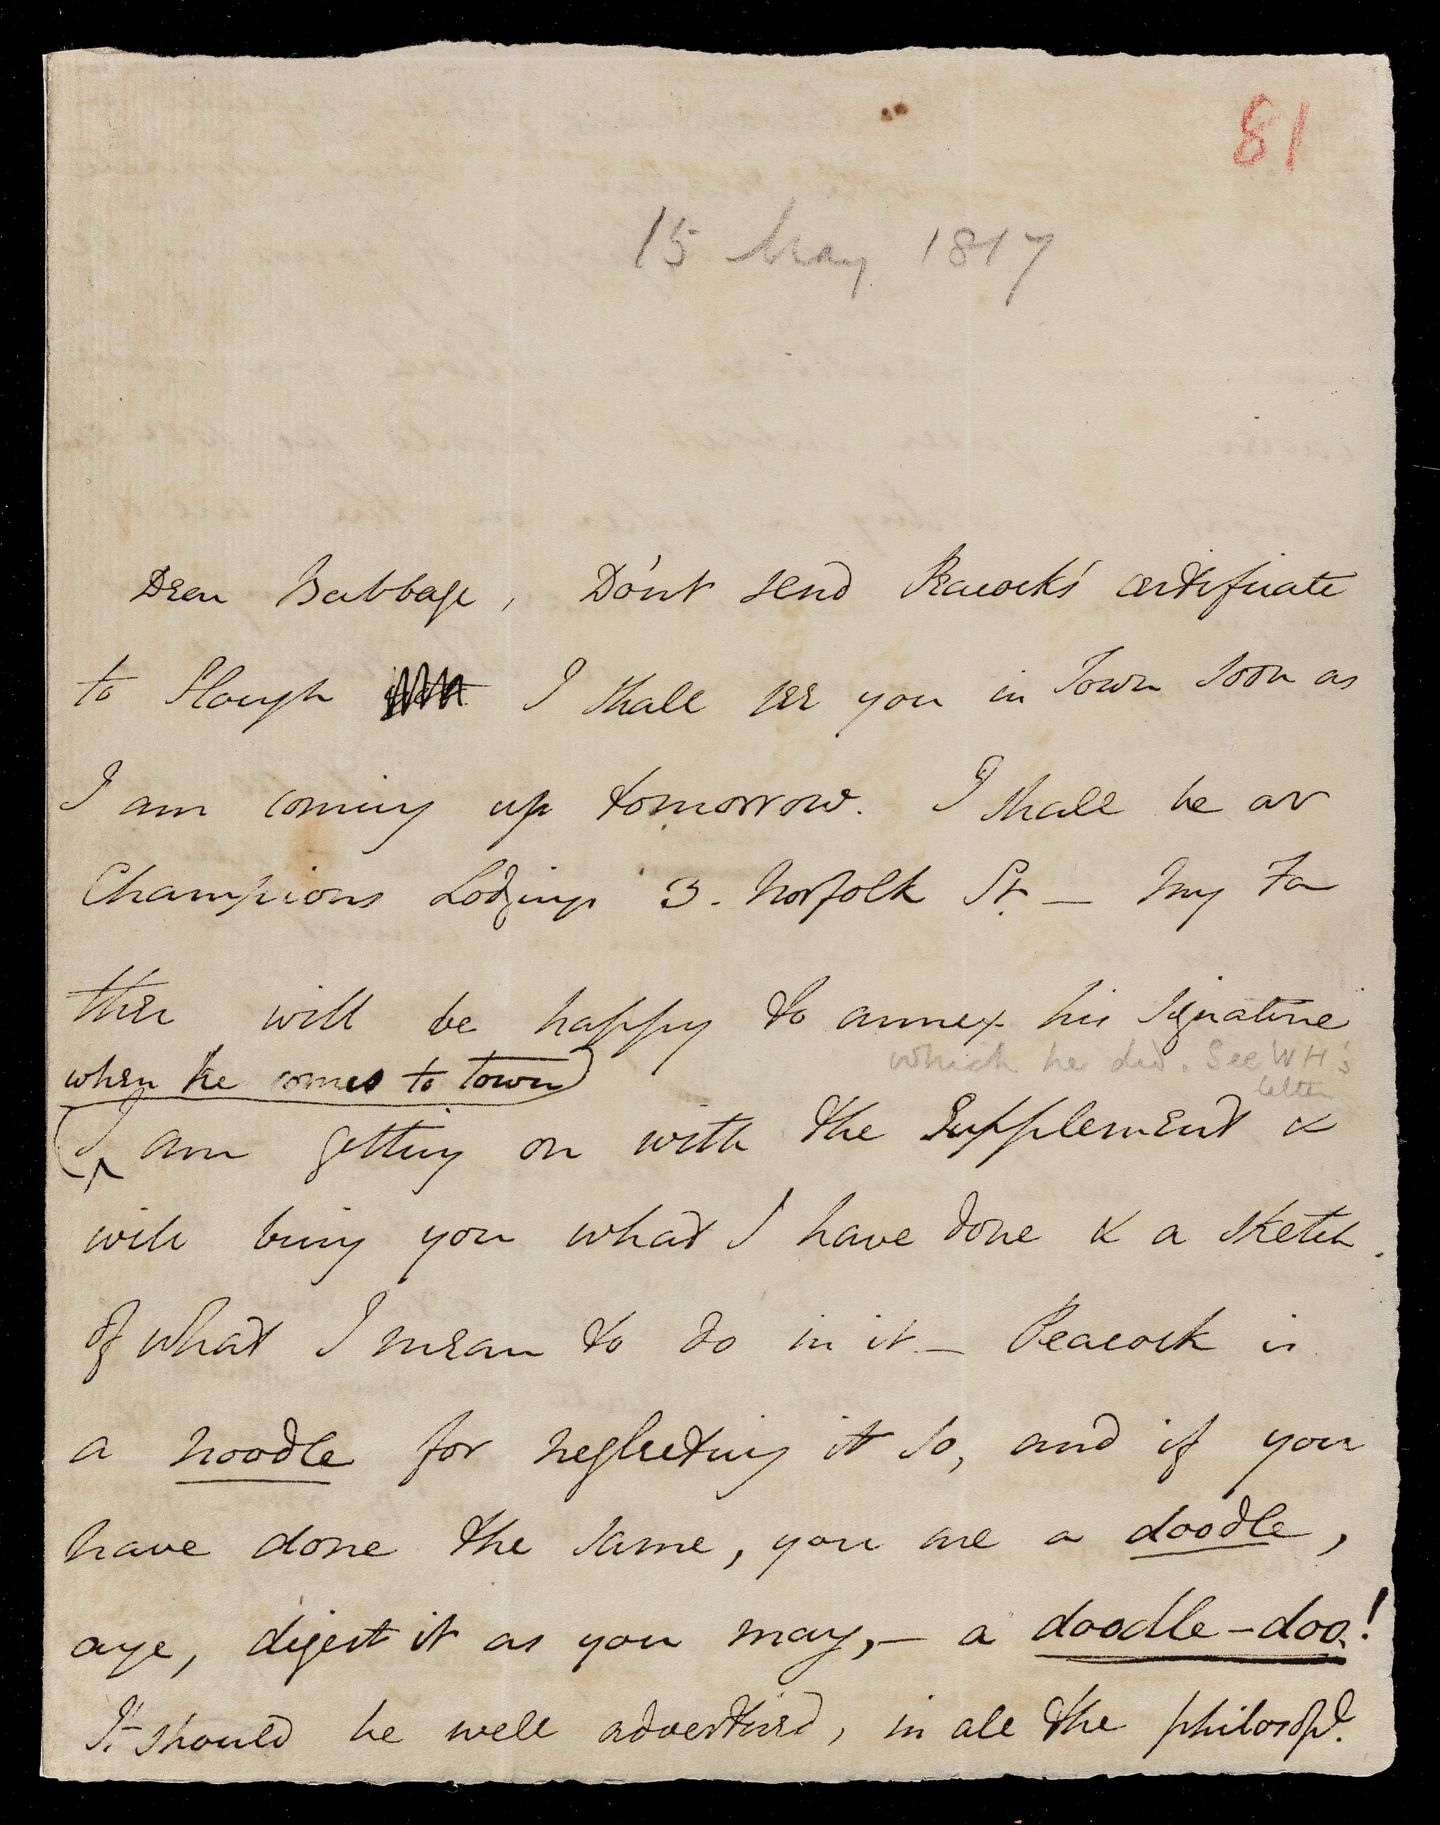 81
15 May 1817
Dear Babbage, Do'nt send Peacock's certificate
to Slough I shall see you in Town soon as
I am coming up tomorrow. I shall be at
Champions Lodgings 3. Norfolk St. — My Fa
ther will be happy to annex his signature
when he comes to town)
which he did. See WH's
letter
(I am getting on with the Supplement &
will bring you what I have done & a sketch
of what I mean to do in it — Peacock is
a noodle for neglecting it so, and if you
have done the same, you are a doodle,
aye, digest it as you may, — a doodle-doo!
It should be well advertised, in all the philosopl.